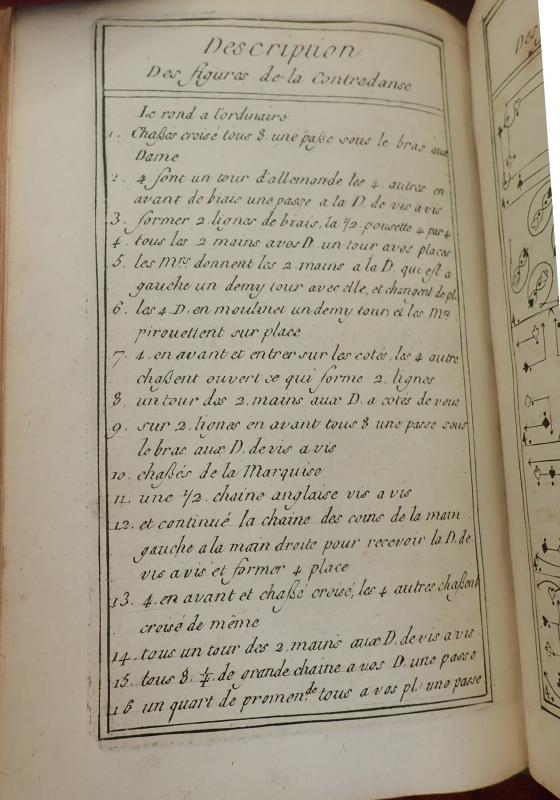 Description
Des figures de la Contredanse
Le rond a l'ordinaire
1. Chaßés croisé tous 8. une paße sous le bras aux
Dame
2. 4 font un tour d'allemande les 4. autres en
avant de biais une passe a la D. de vis a vis
3. former 2. lignes de biais, la 1/2 pousette 4 par 4
4. tous les 2 mains a vos D. un tour a vos places
5. les Mrs donnent les 2. mains a la D. qui est a
gauche un demy tour avec elle, et changent de pl.
6. les 4 D. en moulinet un demy tour, et les Mrs
pirouettent sur place
7. 4. en avant et entrer sur les cotés, les 4 autre
chaßent ouvert ce qui forme 2. lignes
8. un tour des 2. mains aux D. a cotés de vous
9. sur 2. lignes en avant tous 8. une passe sous
le bras aux D. de vis a vis
10. chaßés de la Marquise
11. une 1/2. chaine anglaise vis a vis
12. et continué la chaine des coins de la main
gauche a la main droite pour recevoir la D. de
vis a vis et former 4 place
13. 4. en avant et chaßé croisé, les 4 autres chaßent
croisé de même
14. tous un tour des 2. mains aux D. de vis a vis
15. tous 8. 1/4 de grande chaine a vos D. une passe
16 un quart de promen.de tous a vos pl. une passe